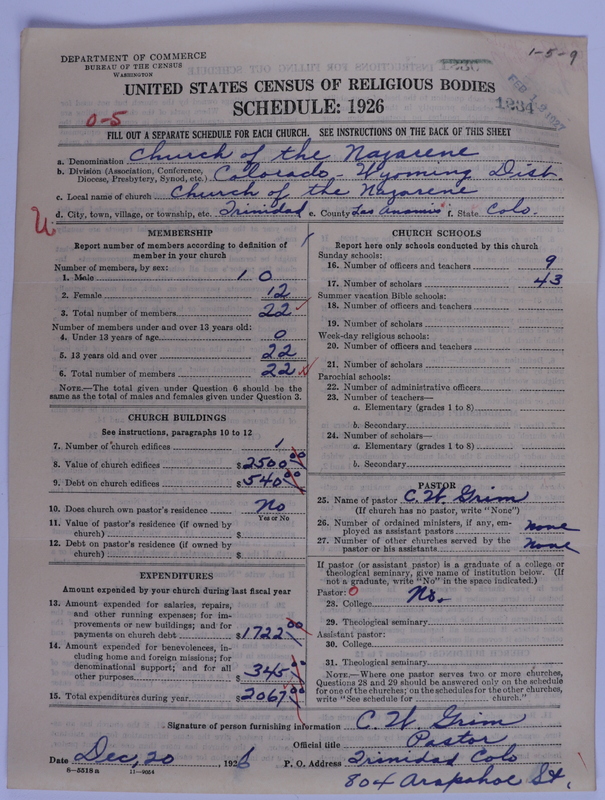 1-5-9
DEPARTMENT OF COMMERCE
BUREAU OF THE CENSUS
WASHINGTON
FEB 1927
1234
UNITED STATES CENSUS OF RELIGIOUS BODIES
SCHEDULE: 1926
0-5
FILL OUT A SEPARATE SCHEDULE FOR EACH CHURCH. SEE INSTRUCTIONS ON THE BACK OF THIS SHEET
a. Denomination Church of the Nazarene
b. Division (Association, Conference, Diocese, Presbytery, Synod, etc.) Colorado-Wyoming Dist.
c. Local name of church Church of the Nazarene
d. City, town, village, or township, etc. Trinidad e. County Las Anamis f. State Colo.
MEMBERSHIP
Report number of members according to definition of
member in your church
Number of members, by sex:
1. Male 10
2. Female 12
3. Total number of members 22
Number of members under and over 13 years old:
4. Under 13 years of age 0
5. 13 years old and over 22
6. Total number of members 22
NOTE.—The total given under Question 6 should be
same as the total of males and females given under Question 3.
CHURCH BUILDINGS
See instructions, paragraphs 10 to 12
7. Number of church edifices 1
8. Value of church edifices $2500.00
9. Debt on church edifices $540.00
10. Does church own pastor's residence No
Yes or No
11. Value of pastor's residence (if owned by
church) $
12. Debt on pastor's residence (if owned by
church) $
EXPENDITURES
Amount expended by your church during last fiscal year
13. Amount expended for salaries, repairs,
and other running expenses; for im-
provements or new buildings; and for
payments on church debt $1722.00
14. Amount expended for benevolences, in-
cluding home and foreign missions; for
denominational support; and for all
other purposes $345.00
15. Total expenditures during year $2067.00
CHURCH SCHOOLS
Report here only schools conducted by this church
Sunday schools:
16. Number of officers and teachers 9
17. Number of scholars 43
Summer vacation Bible schools:
18. Number of officers and teachers
19. Number of scholars
Week-day religious schools:
20. Number of officers and teachers
21. Number of scholars
Parochial schools:
22. Number of administrative officers
23. Number of teachers—
a. Elementary (grades 1 to 8)
b. Secondary
24. Number of scholars—
a. Elementary (grades 1 to 8)
b. Secondary
PASTOR
25. Name of pastor C. W. Grim
(If church has no pastor, write "None")
26. Number of ordained ministers, if any, em-
ployed as assistant pastors none
27. Number of other churches served by the
pastor or his assistants none
If pastor (or assistant pastor) is a graduate of a college or
theological seminary, give name of institution below. (If
not a graduate, write "No" in the space indicated.)
Pastor: 0
28. College No.
29. Theological seminary
Assistant pastor:
30. College
31. Theological seminary
NOTE.—Where one pastor serves two or more churches,
Questions 28 and 29 should be answered only on the schedule
for one of the churches; on the schedules for the other churches,
write "See schedule for church."
Signature of person furnishing information C. W. Grim
Official title Pastor
Date Dec, 20, 1926 P. O. Address Trinidad Colo
8-5518 a 11-9054
804 Arapahoe St.